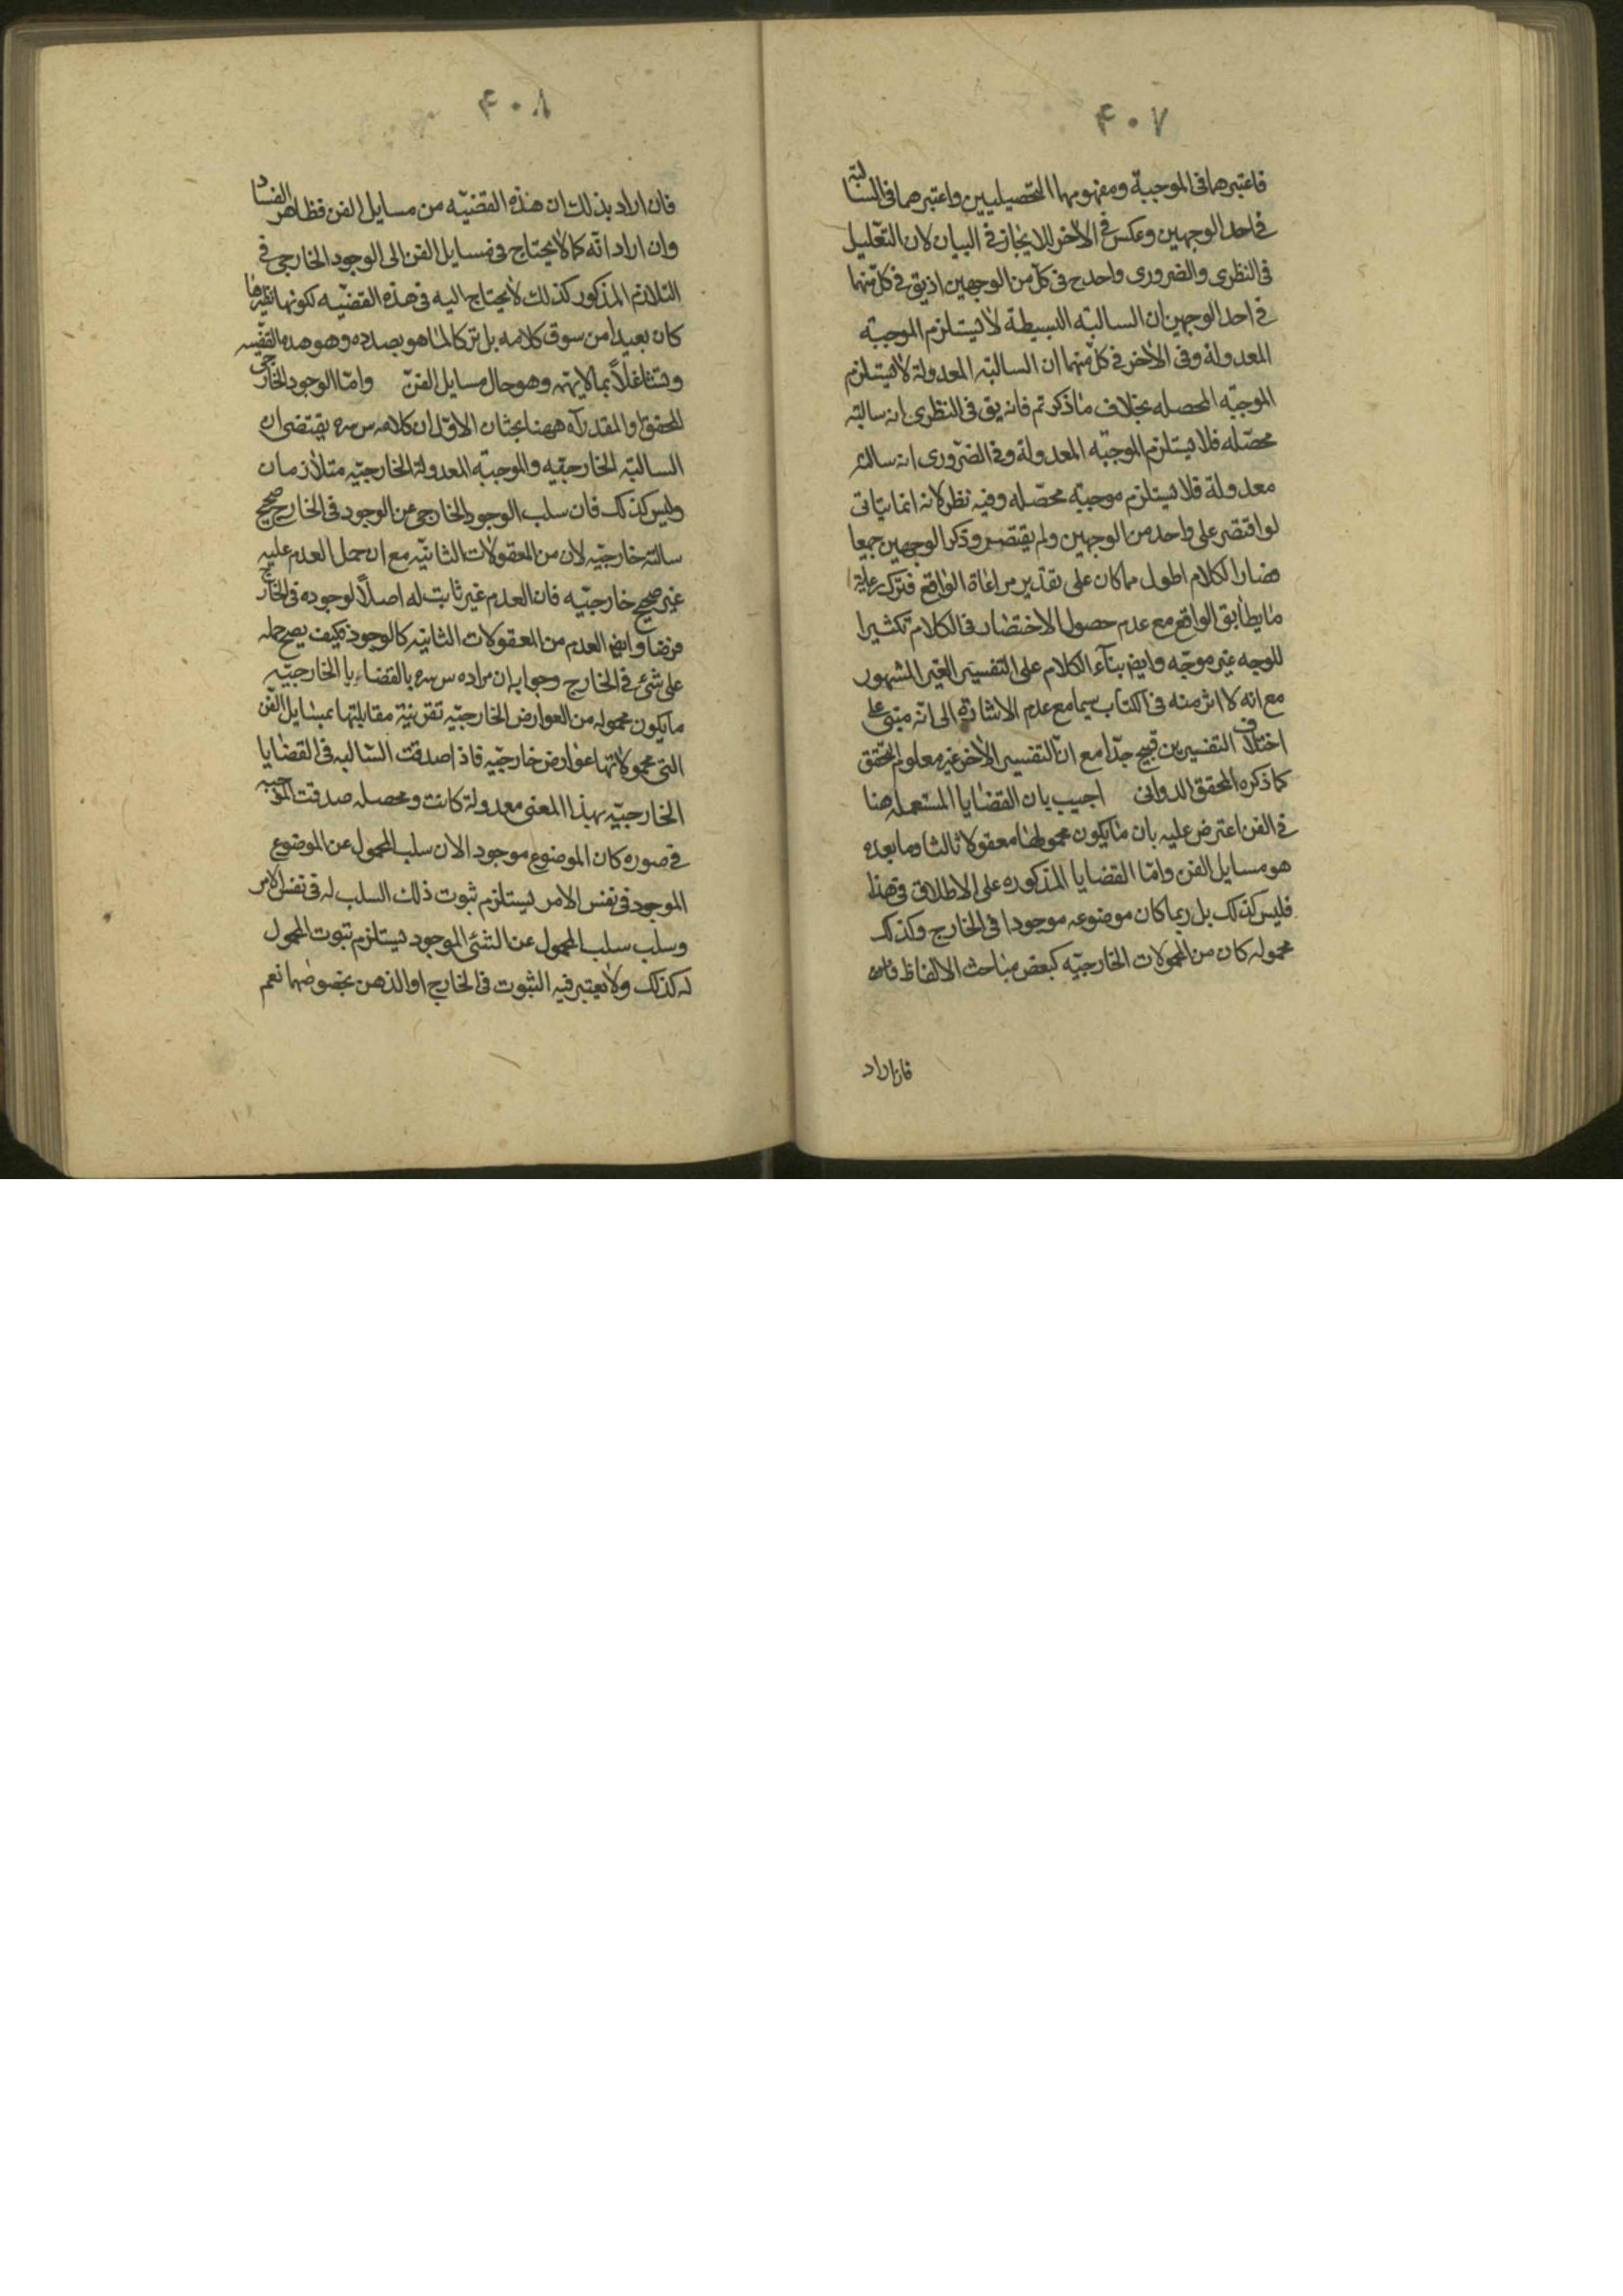 ۴۰۷
فاعتبرهما فى الموجبة ومفهومهما التحصيليين واعتبرهما فى السالبة
فى احد الوجهين وعكس فى الآخر للايجاز فى البيان لان التعليل
فى النظرى والضرورى واحد ح فى كل من الوجهين اذ يق فى كل منهما
فى احد الوجهين ان السالبه البسيطة لا يستلزم الموجبة
المعدولة وفى الآخر فى كل منهما ان السالبة المعدولة لا يستلزم
الموجبة المحصله بخلاف ما ذكرتم فانه يق فى النظرى انه سالبة
محصّله فلا يستلزم الموجبه المعدولة وفى الضرورى انه سالبة
معدولة فلا يستلزم موجبة محصّله وفيه نظر لانه انما يتاتى
لو اقتصر على واحد من الوجهين ولم يقتصر وذكر الوجهين جميعا
فصار الكلام اطول مما كان على تقدير مراعاة الواقع فترك رعاية
ما يطابق الواقع مع عدم حصول الاختصار فى الكلام تكثيرا
للوجه غير موجّه وايض بناء الكلام على التفسير الغير المشهور
مع انه لا اثر منه فى الكتاب سيما مع عدم الاشارة الى انه مبنى على
اختلاف التفسيرين قبيح جدّا مع ان التفسير الآخر غير معلوم التحقق
كما ذكره المحقق الدوانى اجيب بان القضايا المستعمله هنا
فى الفن اعترض عليه بان ما يكون محمولها معقولا ثالثا وما بعده
هو مسايل الفن وامّا القضايا المذكوره على الاطلاق فى هذا
فليس كذلك بل ربما كان موضوعه موجودا فى الخارج وكذلك
محموله كان من المحمولات الخارجيّه كبعض مباحث الالفاظ فانه
فان اراد
۴۰۸
فان اراد بذلك ان هذه القضيّه من مسايل الفن فظاهر الفساد
وان اراد انّه كما لا يحتاج فى مسايل الفن الى الوجود الخارجى فى
التلازم المذكور كذلك لا يحتاج اليه فى هذه القضيّه لكونها نظيرها
كان بعيدا من سوق كلامه بل تركا لما هو بصدده وهو هذه القضيه
وتشاغلاً بما لا يهمّه وهو حال مسايل الفنّ وامّا الوجود الخارجى
المحقق او المقدر آه ههنا بحثان الاوّل ان كلامه س سره يقتضى ان
السالبة الخارجيّه والموجبة المعدولة الخارجيّه متلازمان
وليس كذلك فان سلب الوجود الخارجى عن الوجود فى الخارج صحيح
سالبة خارجيّه لان من المعقولات الثانيّه مع ان حمل العدم عليه
غير صحيح خارجيّه فان العدم غير ثابت له اصلاً لوجوده فى الخارج
فرضا وايض العدم من المعقولات الثانيه كالوجود فكيف يصح حمله
على شئ فى الخارج وجوابه ان مراده س سره بالقضايا الخارجيّه
ما يكون محموله من العوارض الخارجيّه بقرينة مقابلتها بمسايل الفن
التى محمولاتها عوارض خارجيّه فاذا صدقت السّالبه فى القضايا
الخارجيّه بهذا المعنى معدولة كانت ومحصله صدقت الموجبه
فى صوره كان الموضوع موجود الان سلب المحمول عن الموضوع
الموجود فى نفس الامر يستلزم ثبوت ذلك السلب له فى نفس الامر
وسلب سلب المحمول عن الشئ الموجود يستلزم ثبوت المحمول
له كذلك ولا يعتبر فيه الثبوت فى الخارج او الذهن بخصوصهما نعم